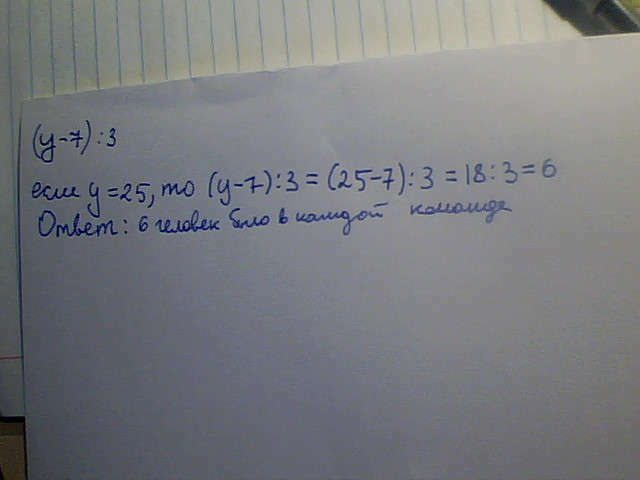 (y-7):3
если y=25, то (y-7):3=(25-7):3=18:3=6
Ответ: 6 человек было в каждой команде